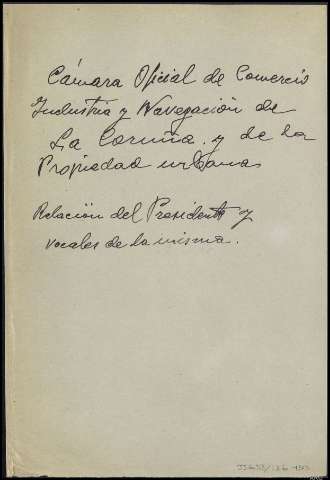 Cámara Oficial de Comercio
Industria y Navegación de
La Coruña. y de la
Propiedad urbana
Relación del Presidente y
vocales de la misma.